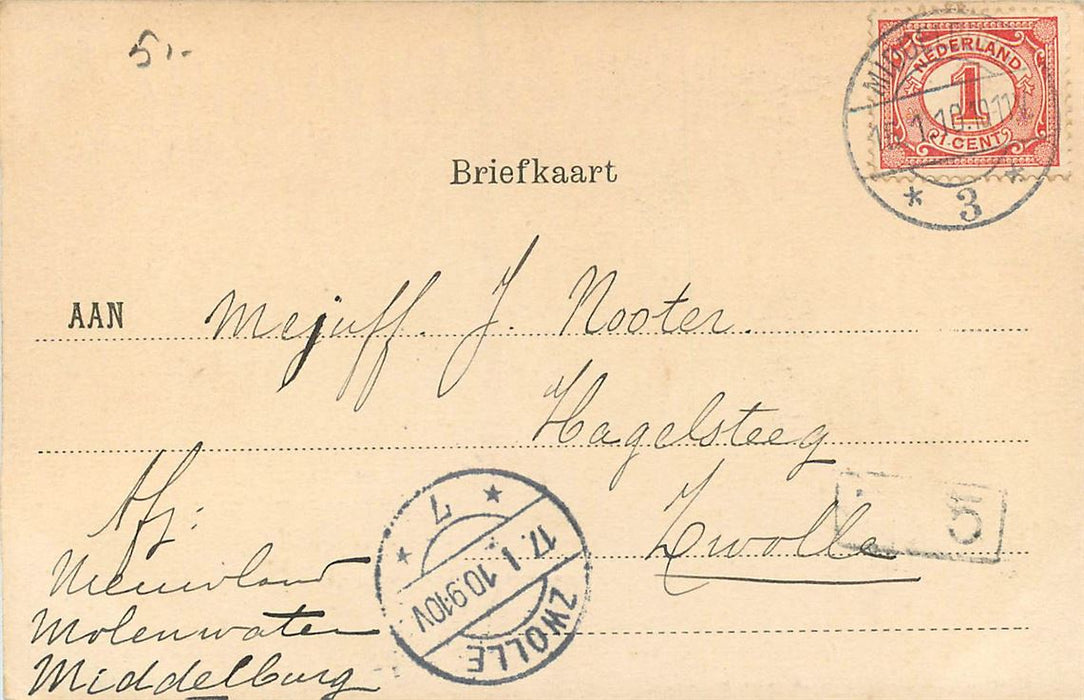 5,-
NEDERLAND
1
1 CENT
3
Briefkaart
AAN Mejuff. J. Nooter.
Hagelsteeg
Zwolle
5
Afz:
Nieuwland
Molenwater
Middelburg
7
17. 1. 10. 9-10V
ZWOLLE